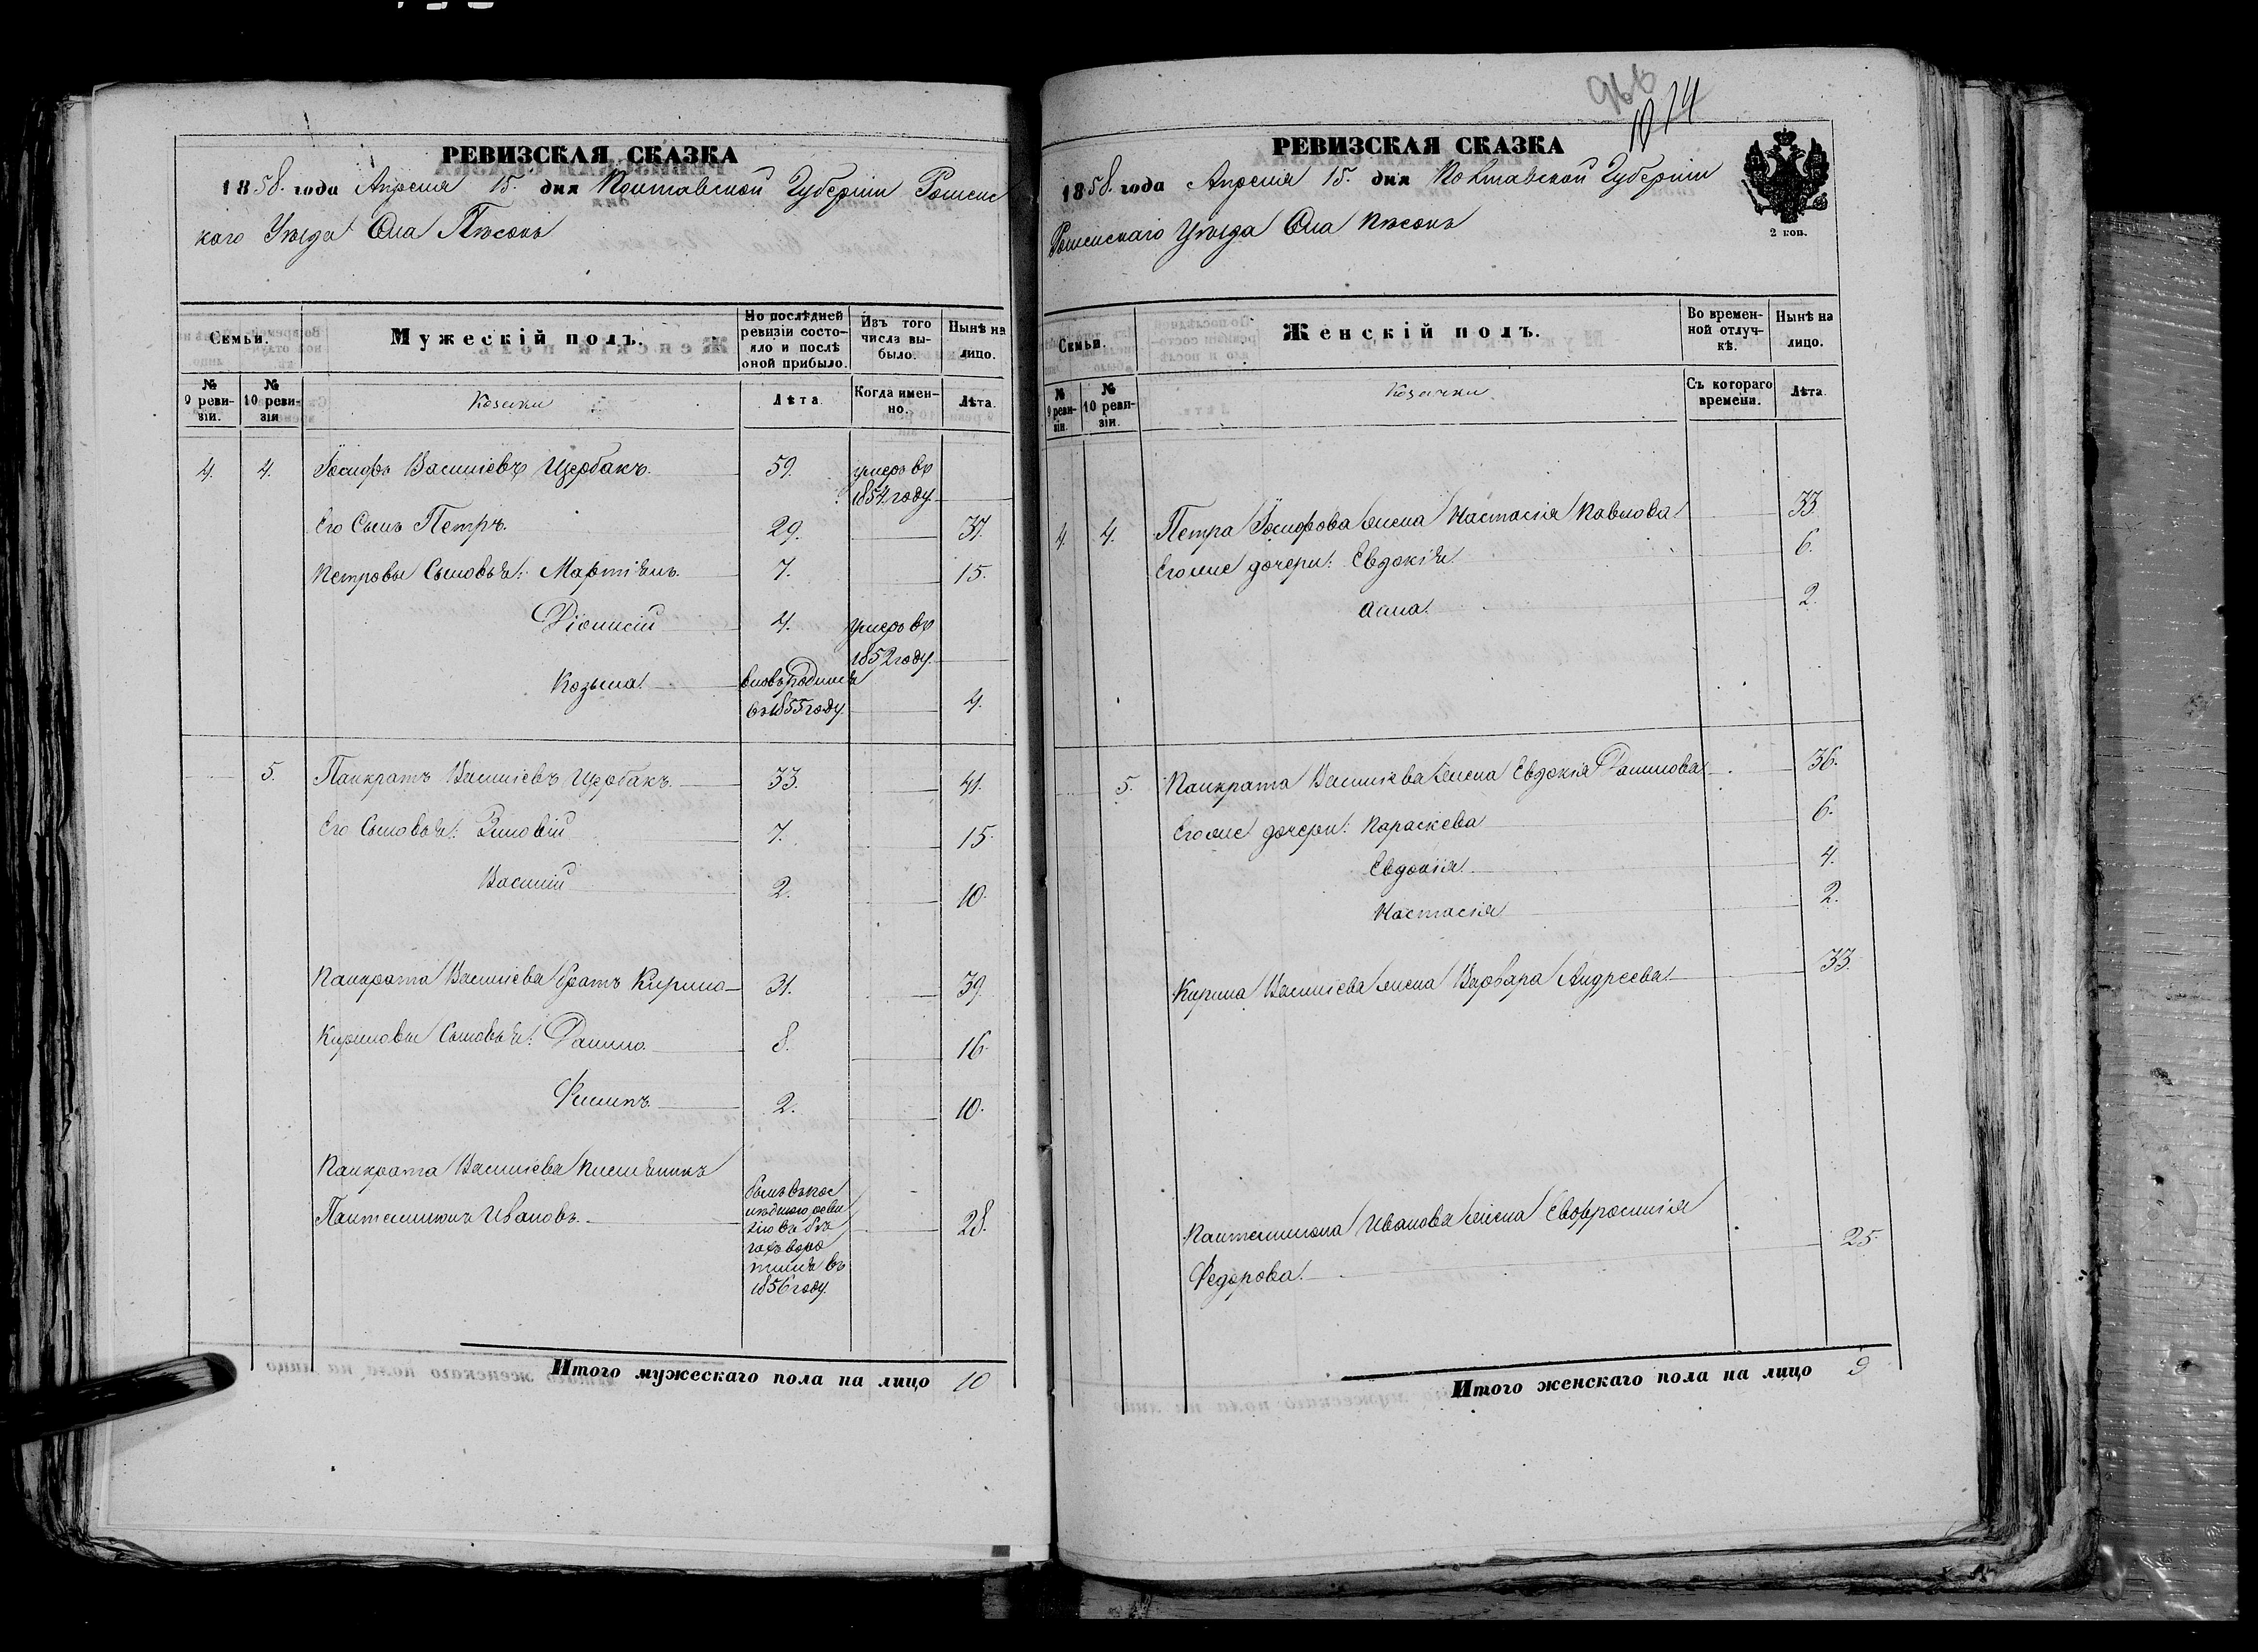 РЕВИЗСКАЯ СКАЗКА
1858. года Апреля 15. дня Полтавской Губерніи Роменс
каго Уѣзда Села Пѣсокъ
Семьи.
Мужескій полъ.
По послѣдней ревизіи состояло и послѣ оной прибыло.
Изъ того числа выбыло.
Нынѣ на лицо.
№ 9 ревизіи.
№ 10 ревизіи
Козаки
Лѣта
Когда именно.
Лѣта.
4. 4. Іосифъ Василіевъ Щербакъ. 59. умеръ въ
1854. году.
Его Сынъ Петръ. 29. 37.
Петровы Сыновья: Мартіянъ. 7. 15.
Діонисій 4. умеръ въ
1852 году.
Козьма. вновь родился
въ 1855 году. 4.
5. Панкратъ Василіевъ Щербакъ. 33. 41.
Его Сыновья: Зиновій 7. 15.
Василій 2. 10.
Панкрата Василіева братъ Кирило 31. 39.
Кириловы Сыновья: Данило. 8. 16.
Филипъ. 2. 10.
Панкрата Василіева племянникъ
Пантелимонъ Ивановъ. 28.
былъ въ пос
лѣднюю реви
зію въ бѣ
гахъ воро
тился въ
1856 году.
Итого мужескаго пола на лицо 10
966
1074
РЕВИЗСКАЯ СКАЗКА
1858. года Апреля 15. дня Полтавской Губерніи
Роменскаго Уѣзда Села Пѣсокъ
2 коп.
Семьи.
Женскій полъ.
Во временной отлучкѣ.
Нынѣ на лицо.
№ 9 ревизіи.
№ 10 ревизіи.
Козачки.
Съ котораго времени.
Лѣта.
4. 4. Петра Іосифова жена Настасія Павлова 33.
Его же дочери: Евдокія 6.
Анна. 2.
5. Панкрата Василіева жена Евдокія Данилова 36.
Его же дочери: Параскева 6.
Евдокія 4.
Настасія 2.
Кирила Василіева жена Варвара Андреева 33.
Пантелимона Иванова жена Евфросинія
Федорова. 25.
Итого женскаго пола на лицо 9